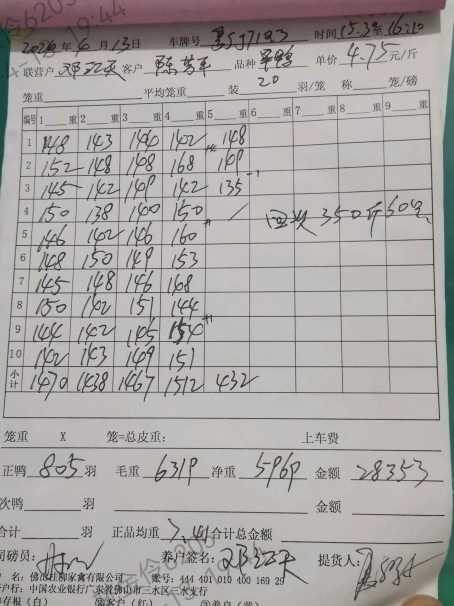 2024年4月13日 车牌号 时间15.30 16:10
联营户 客户 品种 单价4.75元/斤
笼重 平均笼重 装20羽/笼 称 笼/磅
编号 1 重 2 重 3 重 4 重 5 重 6 重 7 重 8 重 9
1 148 143 140 142 148
2 152 148 148 168 149
3 145 142 149 142 135
4 150 138 140 150 350斤
5 146 142 146 160
6 148 150 149 153
7 145 148 146 148
8 150 142 151 144
9 144 142 145 154
10 142 143 149 151
小计 1470 1438 1467 1512 432
笼重 X 笼=总皮重: 上车费
正鸭 805 羽 毛重 6319 净重 5969 金额 28353
次鸭 羽 金额
合计 羽 正品均重 7.41 合计总金额
司磅员: 养户签名: 提货人:
名: 佛山 家禽有限公司 账号: 444 401 010 400 169 29
户行: 中国农业银行广东省佛山市三水区三水支行
存根(白) ②客户(红) ③养户(黄)